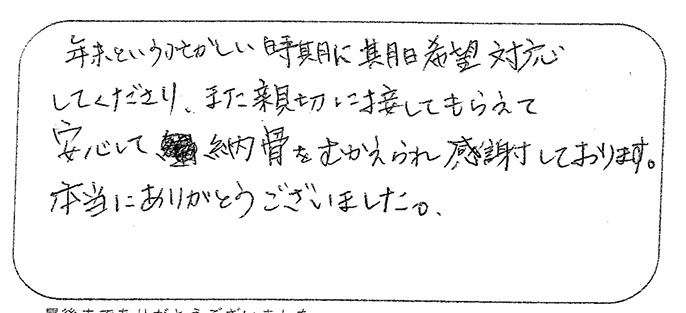 年末といういそがしい時期に期日希望対応
してくださり、また親切に接してもらえて
安心して 納骨をむかえられ感謝しております。
本当にありがとうございました。
最後までありがとうございました